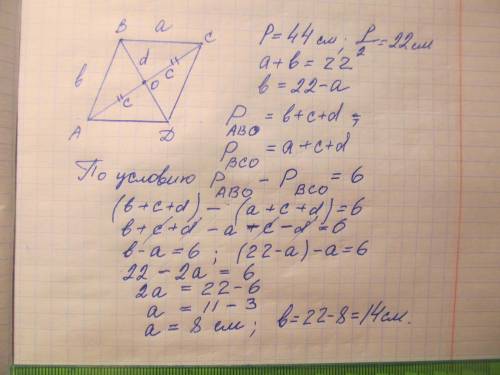 B a C
d
в O c
c
A D
P = 44 см; P/2 = 22 см
a + в = 22
в = 22 - a
P ABO = в + c + d =,
P BCO = a + c + d
По условию P ABO - P BCO = 6
(в + c + d) - (a + c + d) = 6
в + c + d - a - c - d = 6
в - a = 6 ; (22 - a) - a = 6
22 - 2a = 6
2a = 22 - 6
a = 11 - 3
a = 8 см ; в = 22 - 8 = 14 см.